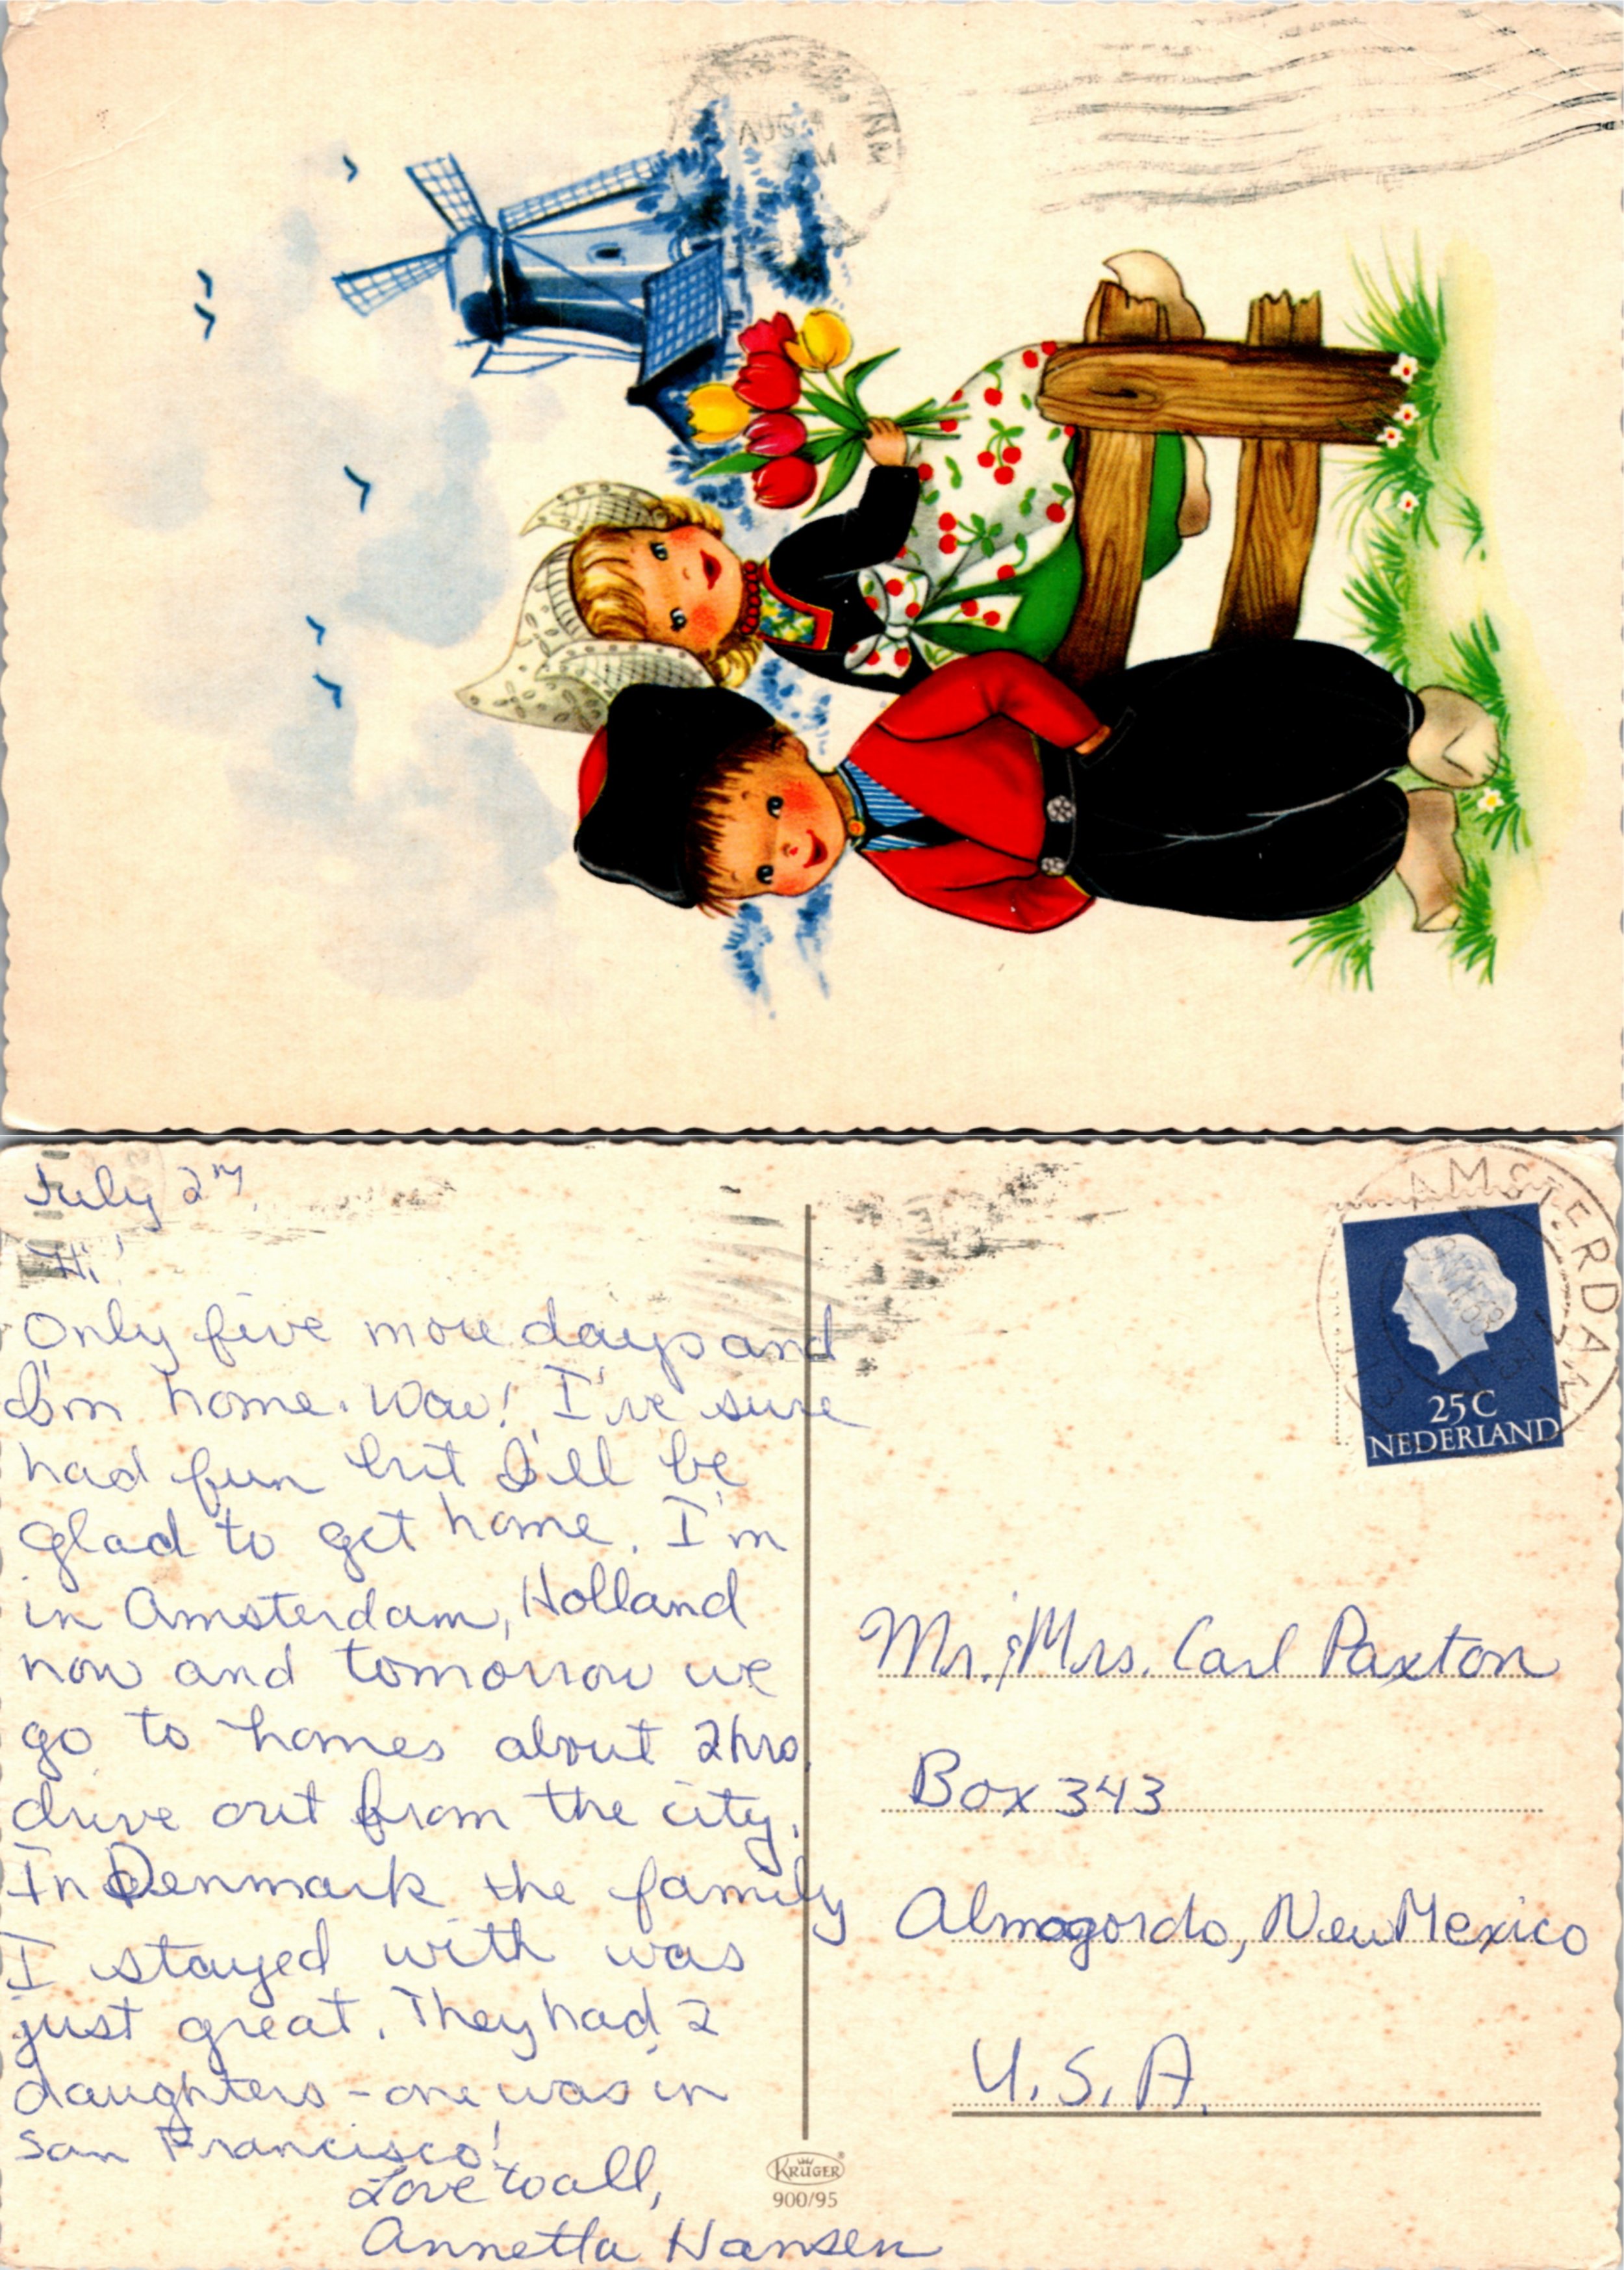 AUG
AM
NN
July 27,
Hi!
Only five more days and
I'm home. Wow! I've sure
had fun but I'll be
glad to get home. I'm
in Amsterdam, Holland
now and tomorrow we
go to homes about 2hrs.
drive out from the city.
In Denmark the family
I stayed with was
just great. They had 2
daughters - one was in
San Francisco!
Love to all,
Annetta Hansen
AMSTERDAM
25C
NEDERLAND
Mr. & Mrs. Carl Paxton
Box 343
Almogordo, New Mexico
U.S.A.
KRÜGER®
900/95